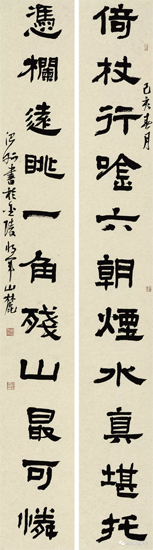 己亥春月
倚杖行唫六朝煙水真堪托
憑欄遠眺一角殘山最可憐
書於金陵將軍山麓